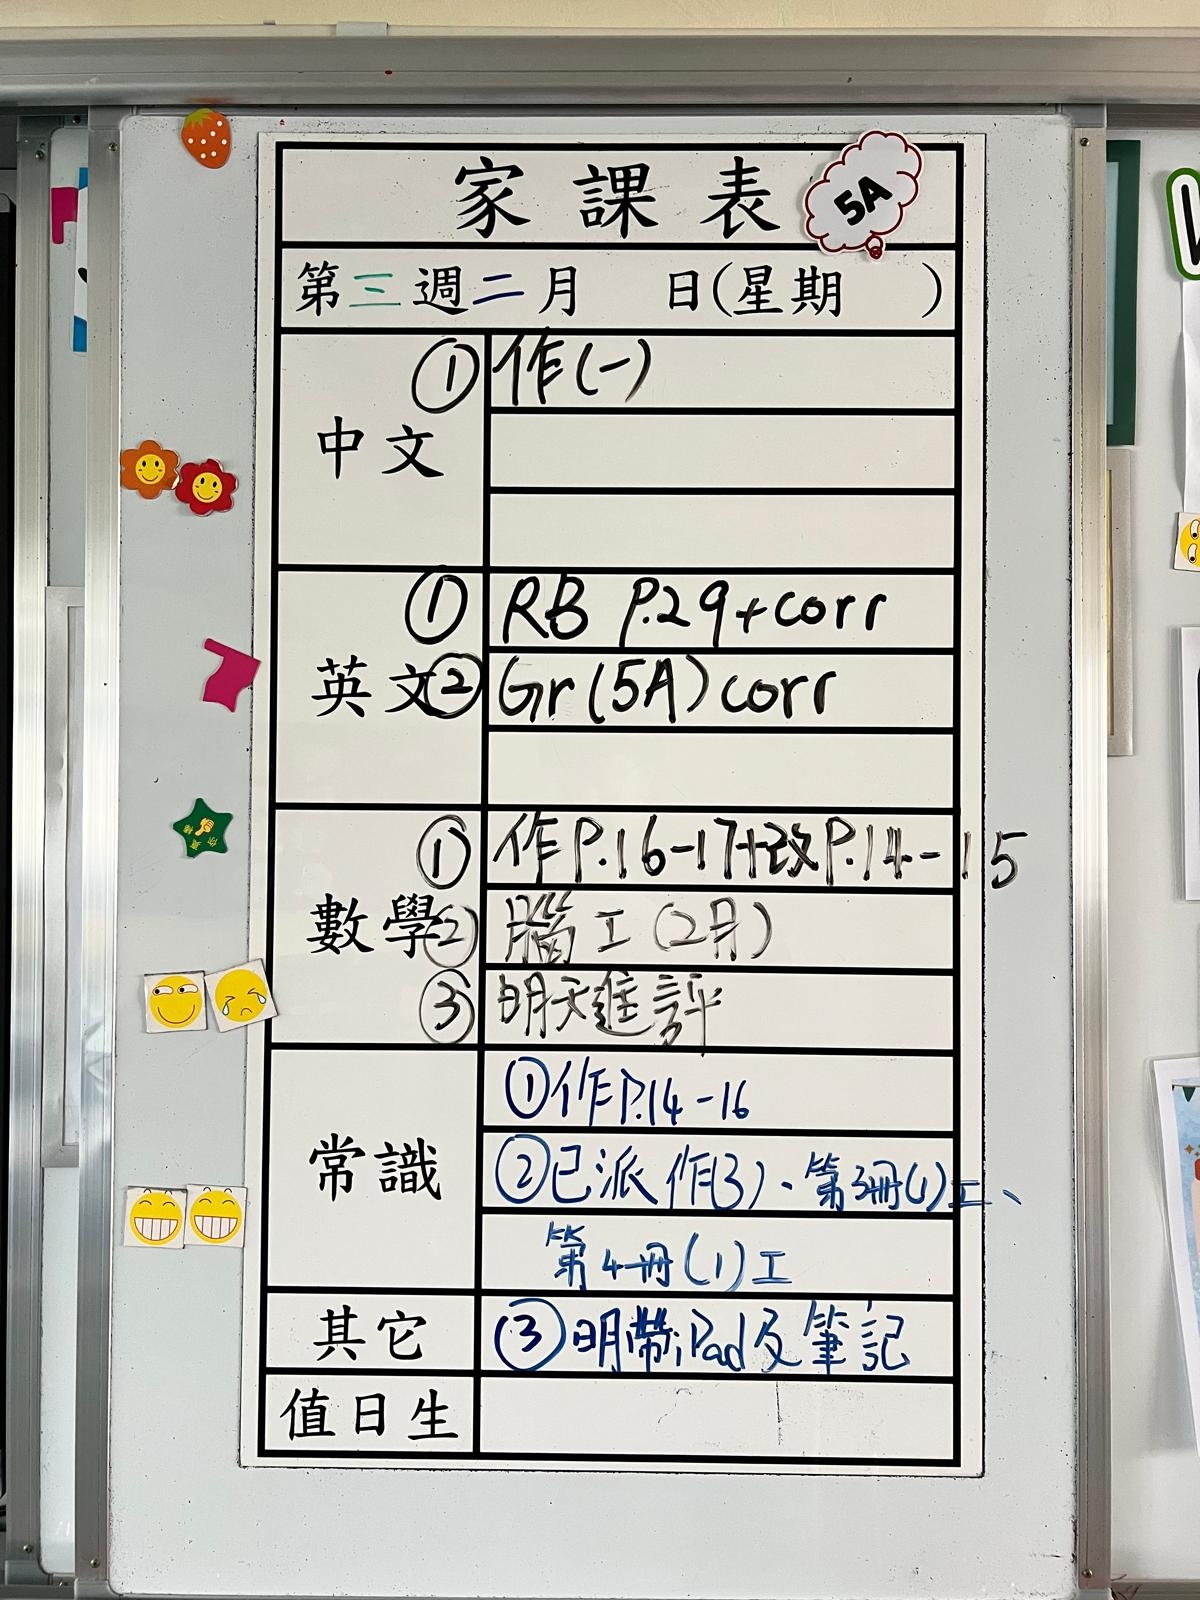 家課表 5A
第三週二月 日(星期 )
中文
① 作(一)
英文
① RB P.29+corr
② Gr(5A)corr
數學
① 作P.16-17+改P.14-15
② 腦工(2月)
③ 明天進評
常識
①作P.14-16
②已派作(3)、第3冊(1)工、
第4冊(1)工
其它
③明帶iPad及筆記
值日生